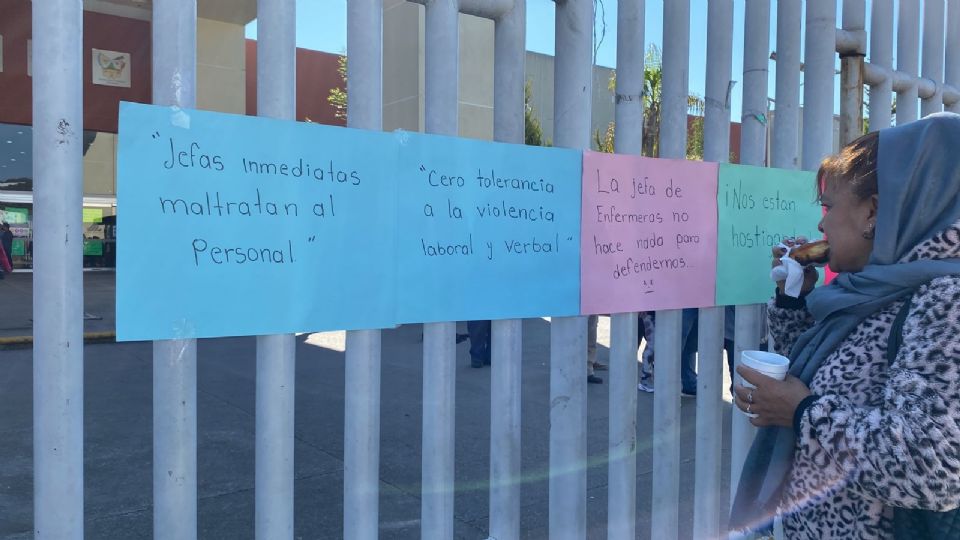 "Jefas inmediatas
maltratan al
Personal."
"Cero tolerancia
a la violencia
laboral y verbal"
La jefa de
Enfermeras no
hace nada para
defendernos...
¡Nos estan